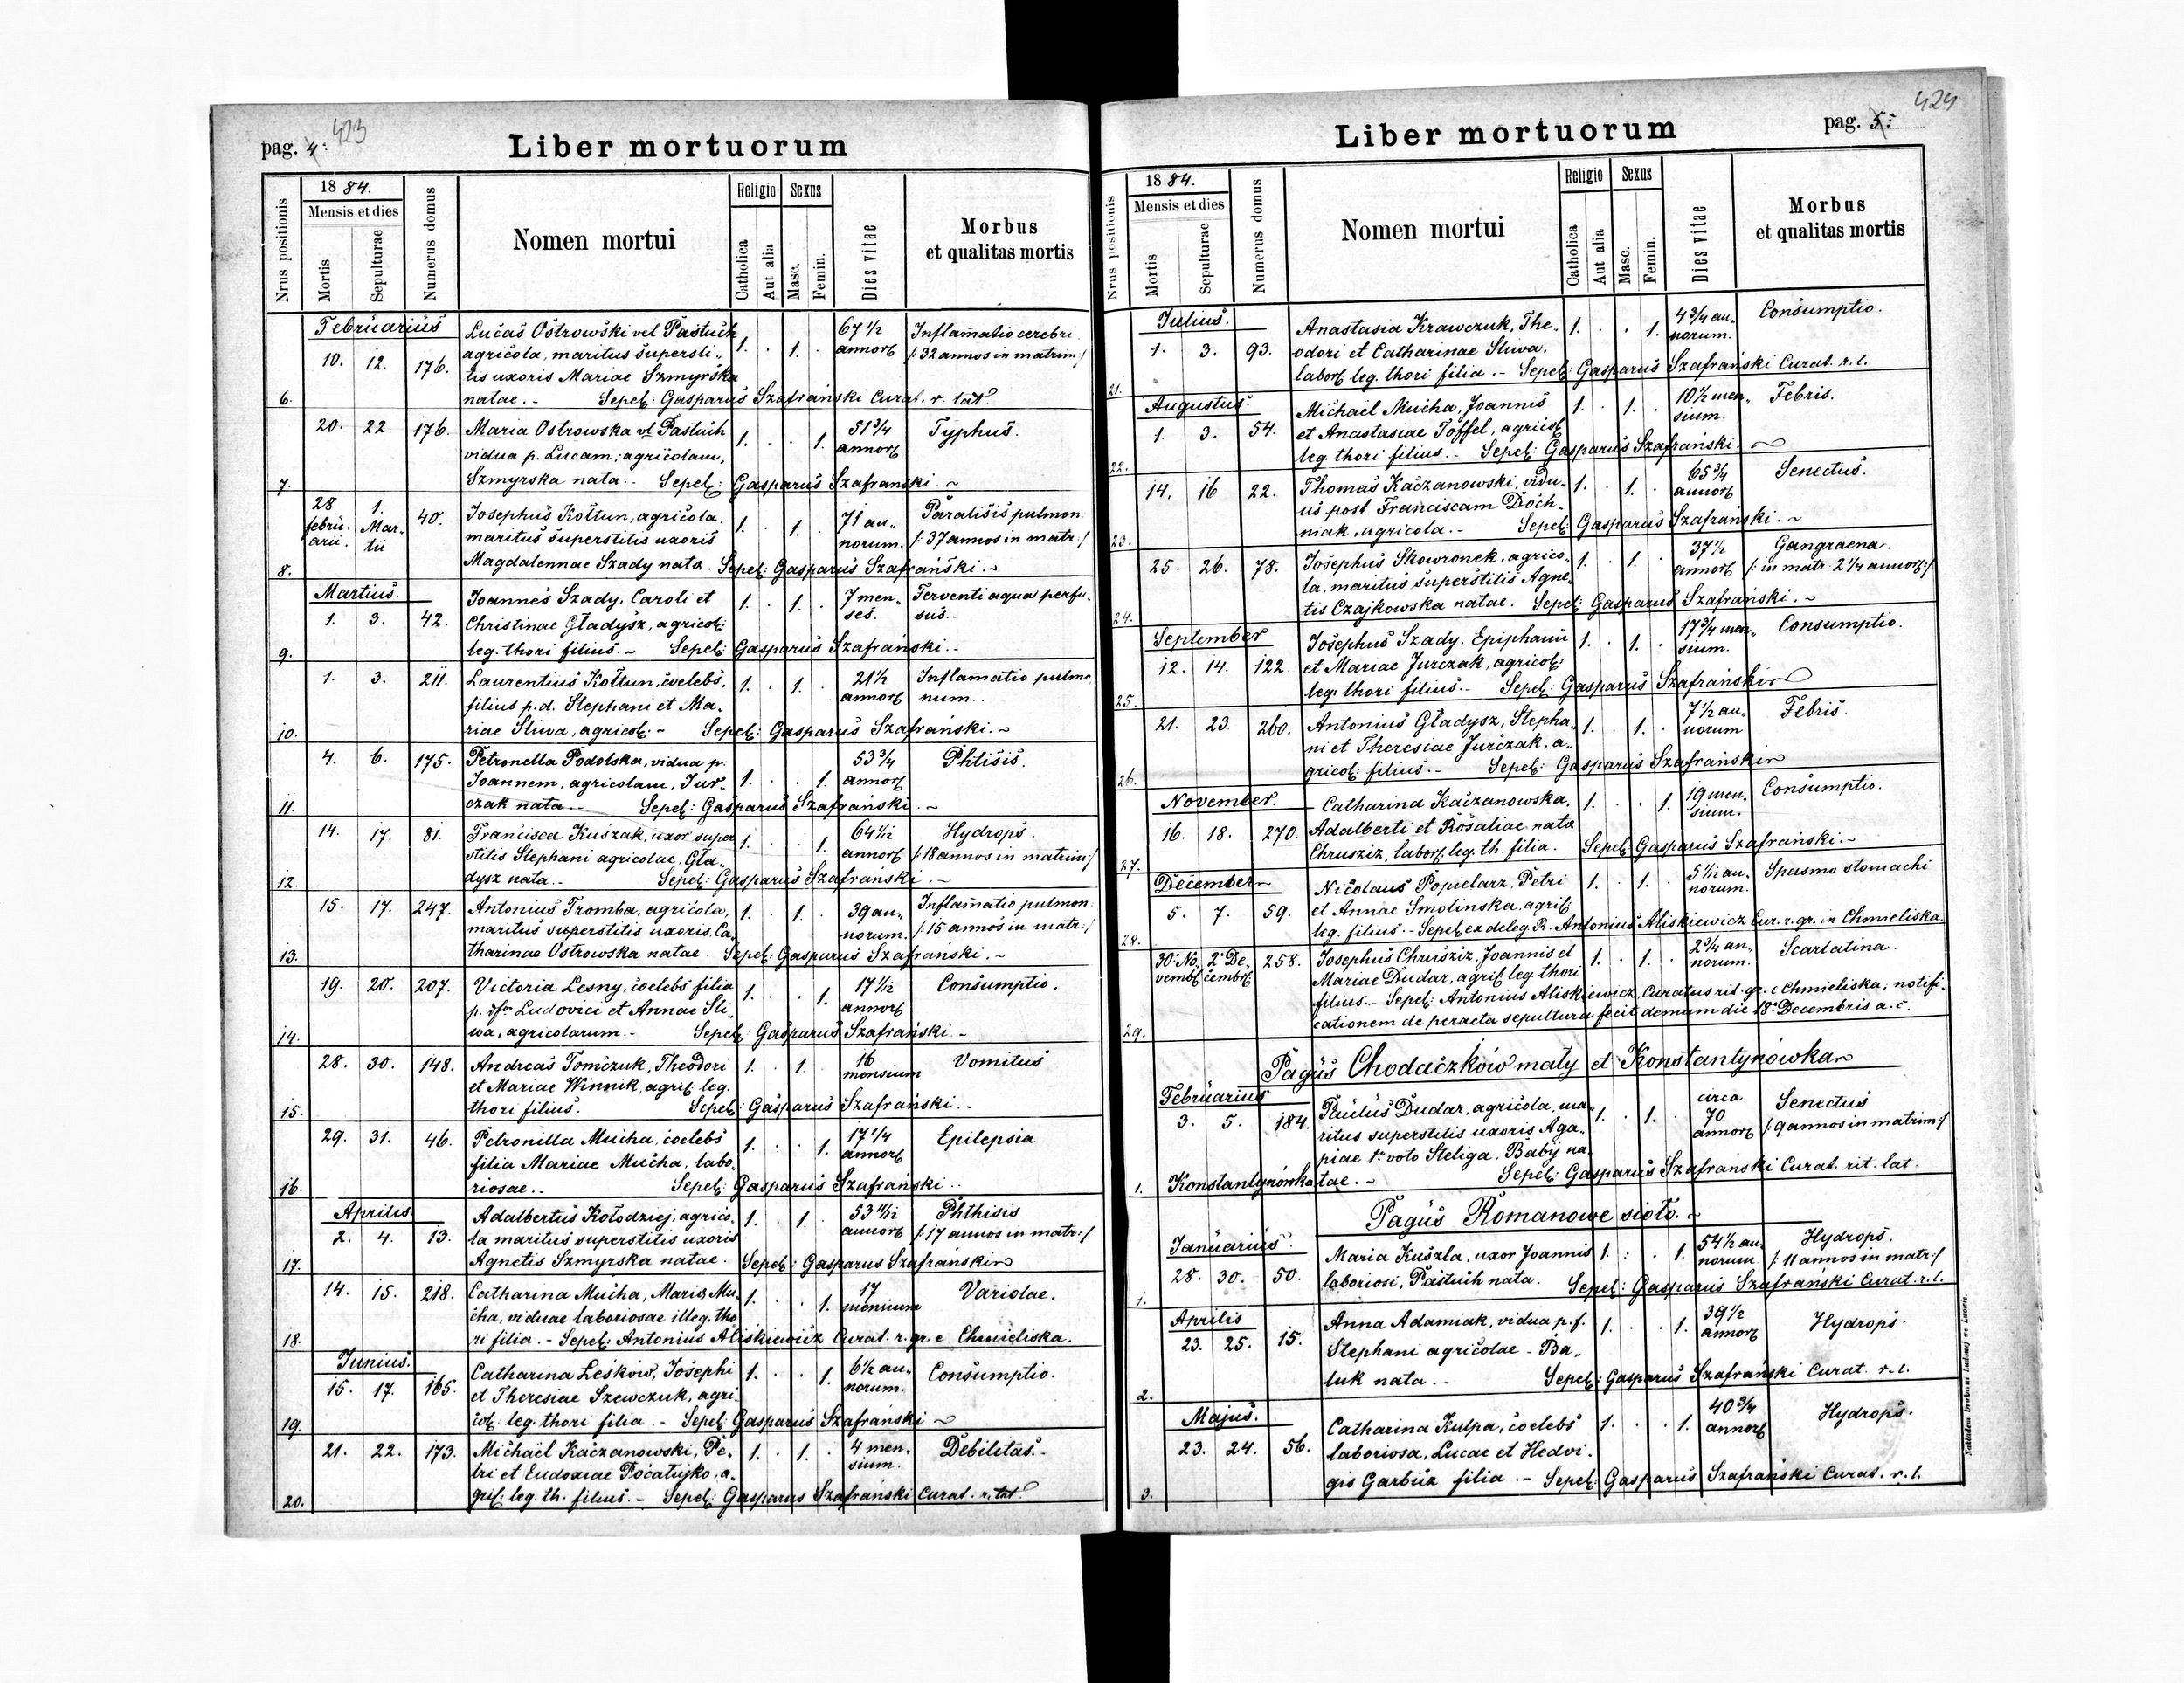 pag. 4: 423
Liber mortuorum
Nrus positionis
1884.
Mensis et dies
Mortis
Sepulturae
Numerus domus
Nomen mortui
Religio
Catholica
Aut alia
Sexus
Masc.
Femin.
Dies vitae
Morbus
et qualitas mortis
Februarius Lucas Ostrowski vel Pastuch 67 1/2 Inflamatio cerebri
10. 12. 176. agricola, maritus supersti„ 1. . 1. . annor. /: 32 annos in matrim:/
tis uxoris Mariae Szmyrska
6. natae. - Sepel: Gasparus Szafrański Curat. r. lat.
20. 22. 176. Maria Ostrowska vel Pastuch 1. . . 1. 51 3/4 Typhus.
vidua p. Lucam, agricolam, annor.
7. Szmyrska nata.. Sepel: Gasparus Szafrański. ~
28 1. 40. Josephus Kołtun, agricola, 1. . 1. . 71 an„ Paralisis pulmon.
febru. Mar. maritus superstitis uxoris norum. /: 37 annos in matr:/
arii. tii
8. Magdalennae Szady nata. Sepel: Gasparus Szafrański. ~
Martius. Joannes Szady, Caroli et 1. . 1. . 7 men„ Ferventi aqua perfu„
1. 3. 42. Christinae Gładysz, agricol: ses. sus..
9. leg. thori filius. ~ Sepel: Gasparus Szafrański..
1. 3. 211. Laurentius Kołtun, coelebs, 1. . 1. . 21 1/2 Inflamatio pulmo
filius p. d. Stephani et Ma„ annor. num..
10. riae Sliwa, agricol. - Sepel: Gasparus Szafrański. ~
4. 6. 175. Petronella Podolska, vidua p. 53 3/4 Phtisis.
Joannem, agricolam, Jur„ 1. . . 1. annor.
11. czak nata.. Sepel: Gasparus Szafrański. ~
14. 17. 81. Francisca Kuszak, uxor super 1. . . 1. 64 1/12 Hydrops.
stitis Stephani agricolae, Gła„ annor. /: 18 annos in matrim:/
12. dysz nata.. Sepel: Gasparus Szafrański. ~
15. 17. 247. Antonius Tromba, agricola, 1. . 1. . 39 an„ Inflamatio pulmon.
maritus superstitis uxoris, Ca„ norum. /: 15 annos in matr:/
13. tharinae Ostrowska natae. Sepel: Gasparus Szafrański. ~
19. 20. 207. Victoria Lesny, coelebs filia 1. . . 1. 17 1/12 Consumptio.
p. Ludovici et Annae Sli„ annor.
14. wa, agricolarum. - Sepel: Gasparus Szafrański. -
28. 30. 148. Andreas Tomczuk, Theodori 1. . 1. . 16 Vomitus
et Mariae Winnik, agric: leg. mensium
15. thori filius. Sepel: Gasparus Szafrański..
29. 31. 46. Petronilla Mucha, coelebs 1. . . 1. 17 1/4 Epilepsia
filia Mariae Mucha, labo„ annor.
16. riosae.. Sepel: Gasparus Szafrański..
Aprilis Adalbertus Kołodziej, agrico„ 1. . 1. . 53 11/12 Phthisis
2. 4. 13. la maritus superstitis uxoris annor. /: 17 annos in matr:/
17. Agnetis Szmyrska natae. Sepel: Gasparus Szafrański
14. 15. 218. Catharina Mucha, Mariae Mu„ 1. . . 1. 17 Variolae.
cha, viduae laboriosae illeg. tho mensium
18. ri filia. - Sepel: Antonius Aliskiewicz Curat. r. gr. e Chmieliska.
Junius. Catharina Leśkow, Josephi 1. . . 1. 6 1/2 an„ Consumptio.
15. 17. 165. et Theresiae Szewczuk, agri„ norum.
19. col: leg. thori filia - Sepel: Gasparus Szafrański ~
21. 22. 173. Michael Kaczanowski, Pe„ 1. . 1. . 4 men„ Debilitas.
tri et Eudoxiae Pocałujko, a„ sium.
20. gric. leg. th. filius. - Sepel: Gasparus Szafrański Curat. r. lat.
pag. 5: 424
Liber mortuorum
Nrus positionis
1884.
Mensis et dies
Mortis
Sepulturae
Numerus domus
Nomen mortui
Religio
Catholica
Aut alia
Sexus
Masc.
Femin.
Dies vitae
Morbus
et qualitas mortis
Julius. Anastasia Krawczuk, The„ 1. . . 1. 4 3/4 an„ Consumptio.
1. 3. 93. odori et Catharinae Sliwa, norum.
21. labor. leg. thori filia. - Sepel: Gasparus Szafrański Curat. r. l.
Augustus. Michael Mucha, Joannis 1. . 1. . 10 1/2 men„ Febris.
1. 3. 54. et Anastasiae Toffel, agricol. sium.
22. leg. thori filius. - Sepel: Gasparus Szafrański. ~
14. 16 22. Thomas Kaczanowski, vidu„ 1. . 1. . 65 3/4 Senectus.
us post Franciscam Doch„ annor.
23. niak, agricola. - Sepel: Gasparus Szafrański. ~
25. 26. 78. Josephus Skowronek, agrico„ 1. . 1. . 37 1/2 Gangraena.
la, maritus superstitis Agne„ annor. /: in matr: 2 1/4 annor:/
24. tis Czajkowska natae. Sepel: Gasparus Szafrański. ~
September Josephus Szady, Epiphanii 1. . 1. . 17 3/4 men„ Consumptio.
12. 14. 122. et Mariae Jurczak, agricol: sium.
25. leg: thori filius. - Sepel: Gasparus Szafrański
21. 23 260. Antonius Gładysz, Stepha„ 1. . 1. . 7 1/2 an„ Febris.
ni et Theresiae Jurczak, a„ norum
26. gricol: filius. - Sepel: Gasparus Szafrański
November. Catharina Kaczanowska, 1. . . 1. 19 men„ Consumptio.
16. 18. 270. Adalberti et Rosaliae nata sium.
27. Chrusziz, labor. leg. th. filia. Sepel: Gasparus Szafrański. ~
December Nicolaus Popielarz, Petri 1. . 1. . 5 1/12 an„ Spasmo stomachi
5. 7. 59. et Annae Smolinska, agric. norum.
28. leg. filius. - Sepel. ex deleg. R. Antonius Aliskiewicz Cur. r. gr. in Chmieliska.
30. No„ 2. De„ 258. Josephus Chrusziz, Joannis et 1. . 1. . 2 3/4 an„ Scarlatina.
vemb. cembr. Mariae Dudar, agric. leg. thori norum.
filius. - Sepel: Antonius Aliskiewicz, Curatus rit. gr. e Chmieliska, notifi„
29. cationem de peracta sepultura fecit demum die 18. Decembris a. c.
Pagus Chodaczków mały et Konstantynówka
Februarius Paulus Dudar, agricola, ma„ 1. . 1. . circa Senectus
3. 5. 184. ritus superstitis uxoris Aga„ 70 /: 9 annos in matrim:/
piae 1. voto Steliga, Babij na„ annor.
1. Konstantynówka tae. ~ Sepel: Gasparus Szafrański Curat. rit. lat.
Pagus Romanowe sioło. ~
Januarius. Maria Kuszla, uxor Joannis 1. . . 1. 54 1/2 an„ Hydrops.
28. 30. 50. laboriosi, Pastuch nata. norum /: 11 annos in matr:/
1. Sepel: Gasparus Szafrański Curat. r. l.
Aprilis Anna Adamiak, vidua p. f. 1. . . 1. 39 1/2 Hydrops.
23. 25. 15. Stephani agricolae - Ba„ annor.
2. luk nata. - Sepel: Gasparus Szafrański Curat. r. l.
Majus. Catharina Kulpa, coelebs 1. . . 1. 40 3/4 Hydrops.
23. 24. 56. laboriosa, Lucae et Hedvi„ annor.
3. gis Garbuz filia. - Sepel: Gasparus Szafrański Curat. r. l.
Nakładem Drukarni Ludowej we Lwowie.